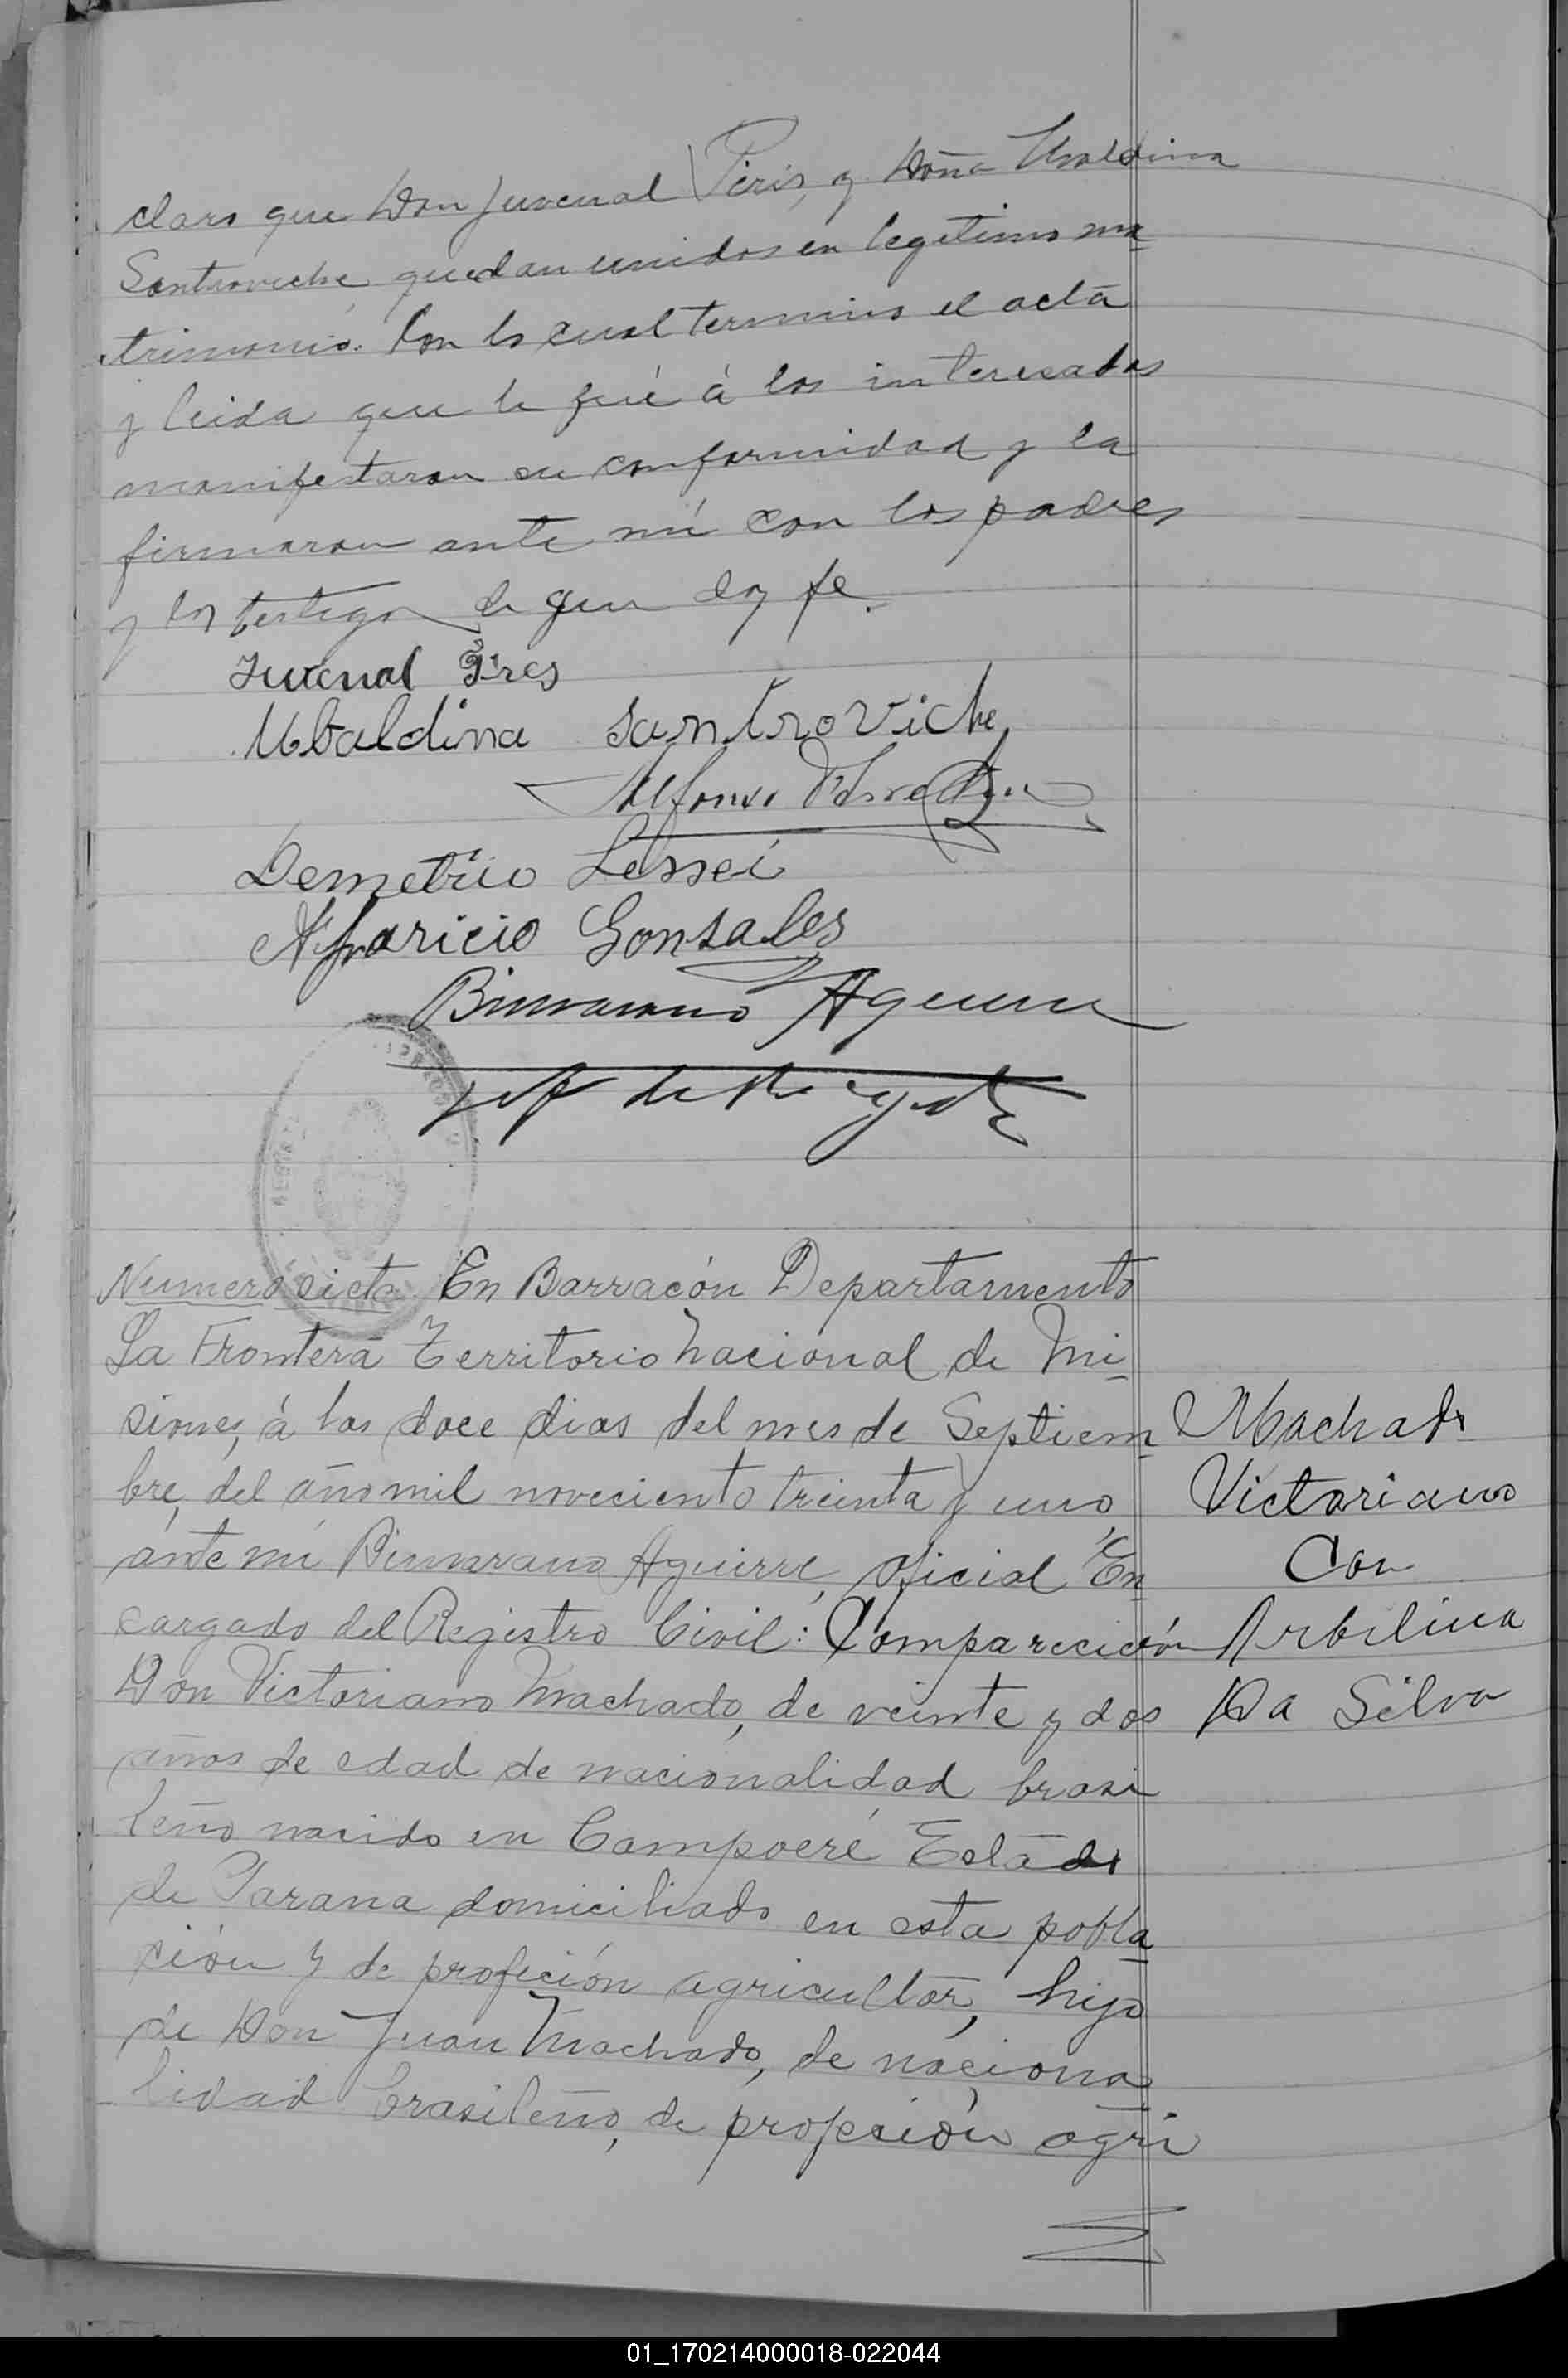 claro que Don Juvenal Piris, y Doña Ubaldina
Santroviche quedan unidos en legitimo ma
trimonio. Con lo cual termino el acta
y leida que le fué á los interesados
manifestaron su conformidad y la
firmaron ante mi con los padres
y los testigos de que doy fe.
Juvenal Pires
Ubaldina Santroviche
Alfonso
Demetrio Lessei
Aparicio Gonsales
Binvarano Aguirre
Numero siete En Barracón Departamento
La Frontera Territorio Nacional de Mi
siones, á los doce dias del mes de Septiem
bre, del año mil noveciento treinta y uno,
ánte mi Binvarano Aguirre, oficial En
cargado del Registro Civil: Comparecición
Don Victoriano Machado, de veinte y dos
años de edad de nacionalidad brasi
leño nacido en Campoeré Estado
de Parana domiciliado en esta pobla
ción y de profeción agricultor, hijo
de Don Juan Machado, de naciona
lidad brasileño, de profeción agri
Machado
Victoriano
Con
Arbilina
Da Silva
01_170214000018-022044